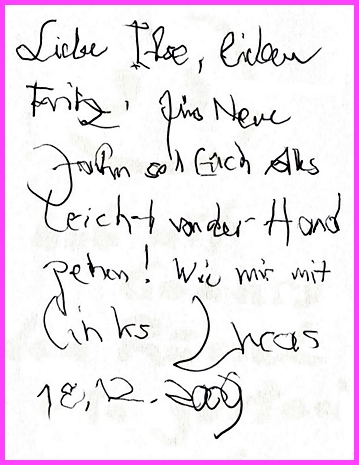 Liebe Ilse, lieber
Fritz, fürs Neue
Jahr soll Euch Alles
leicht von der Hand
gehen! Wie mir mit
links Lucas
18.12.2009